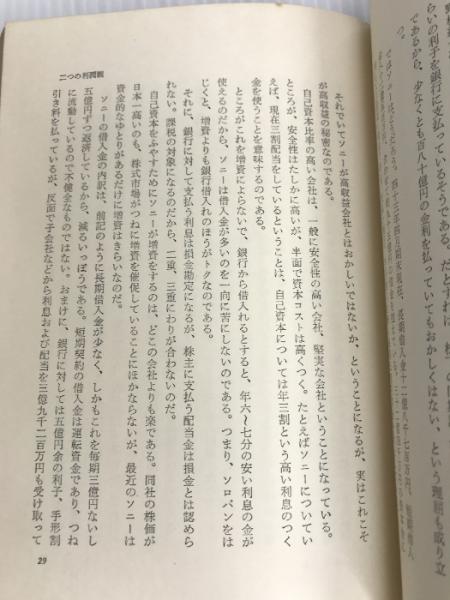 らいの利子を銀行に支払っているそうである。だとすれば、
であるから、少なくとも百八十億円の金利を払っていてもおかしくはない、という理屈も成り立
それでいてソニーが高収益会社とはおかしいではないか、ということになるが、実はこれこそ
が高収益の秘密なのである。
自己資本比率の高い会社は、一般に安全性の高い会社、堅実な会社ということになっている。
ところが、安全性はたしかに高いが、半面で資本コストは高くつく。たとえばソニーについてい
えば、現在三割配当をしているということは、自己資本については年三割という高い利息のつく
金を使うことを意味するのである。
ところがこれを増資によらないで、銀行から借入れるとすると、年六〜七分の安い利息の金が
使えるのだから、ソニーは借入金が多いのを一向に苦にしないのである。つまり、ソロバンをは
じくと、増資よりも銀行借入れのほうがトクなのである。
それに、銀行に対して支払う利息は損金勘定になるが、株主に支払う配当金は損金とは認めら
れない。課税の対象になるのだから、二重、三重にわりが合わないのだ。
自己資本をふやすためにソニーが増資をするのは、どこの会社よりも楽である。同社の株価が
日本一高いのも、株式市場がつねに増資を催促していることにほかならないが、最近のソニーは
資金的なゆとりがあるだけに増資はきらいなのだ。
ソニーの借入金の内訳は、前記のように長期借入金が少なく、しかもこれを毎期三億円ないし
五億円ずつ返済しているから、減るいっぽうである。短期契約の借入金は運転資金であり、つね
に流動しているので不健全なものではない。おまけに、銀行に対しては五億円余の利子、手形割
引き料を払っているが、反面で子会社などから利息および配当を三億九千二百万円も受け取って
二つの利潤観
29